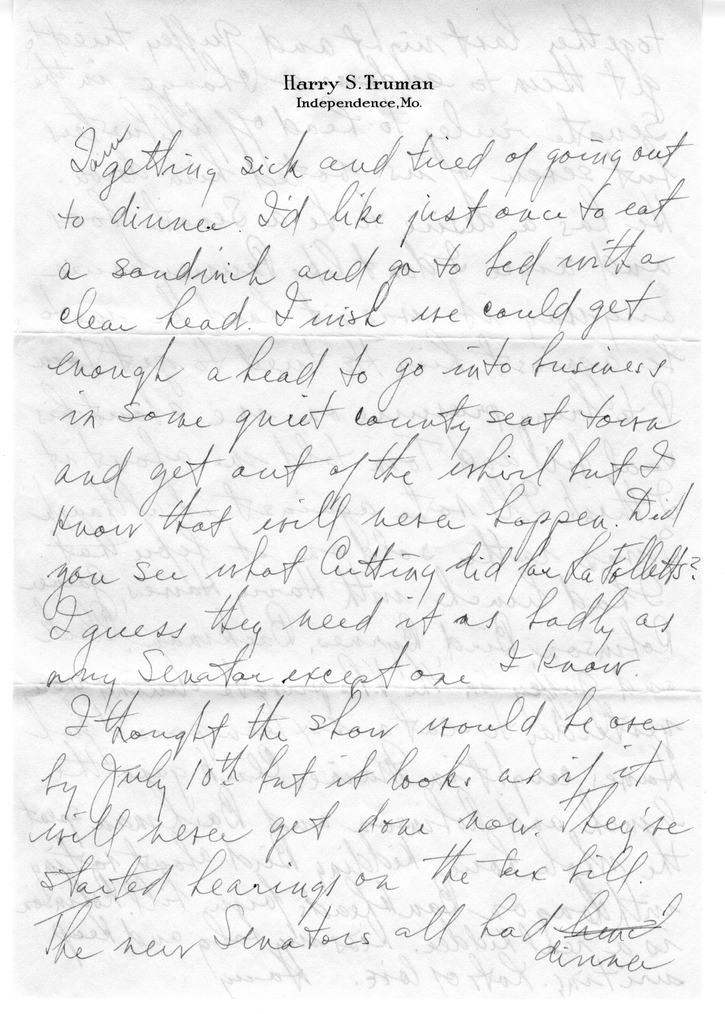 Harry S. Truman
Independence, Mo.
I am getting sick and tired of going out
to dinner. I'd like just once to eat
a sandwich and go to bed with a
clear head. I wish we could get
enough ahead to go into business
in some quiet county seat town
and get out of the whirl but I
know that will never happen. Did
you see what Cutting did for La Folletts?
I guess they need it as badly as
any Senator except one I know.
I thought the show would be over
by July 10th but it looks as if it
will never get done now. They've
started hearings on the tax bill.
The new Senators all had
dinner